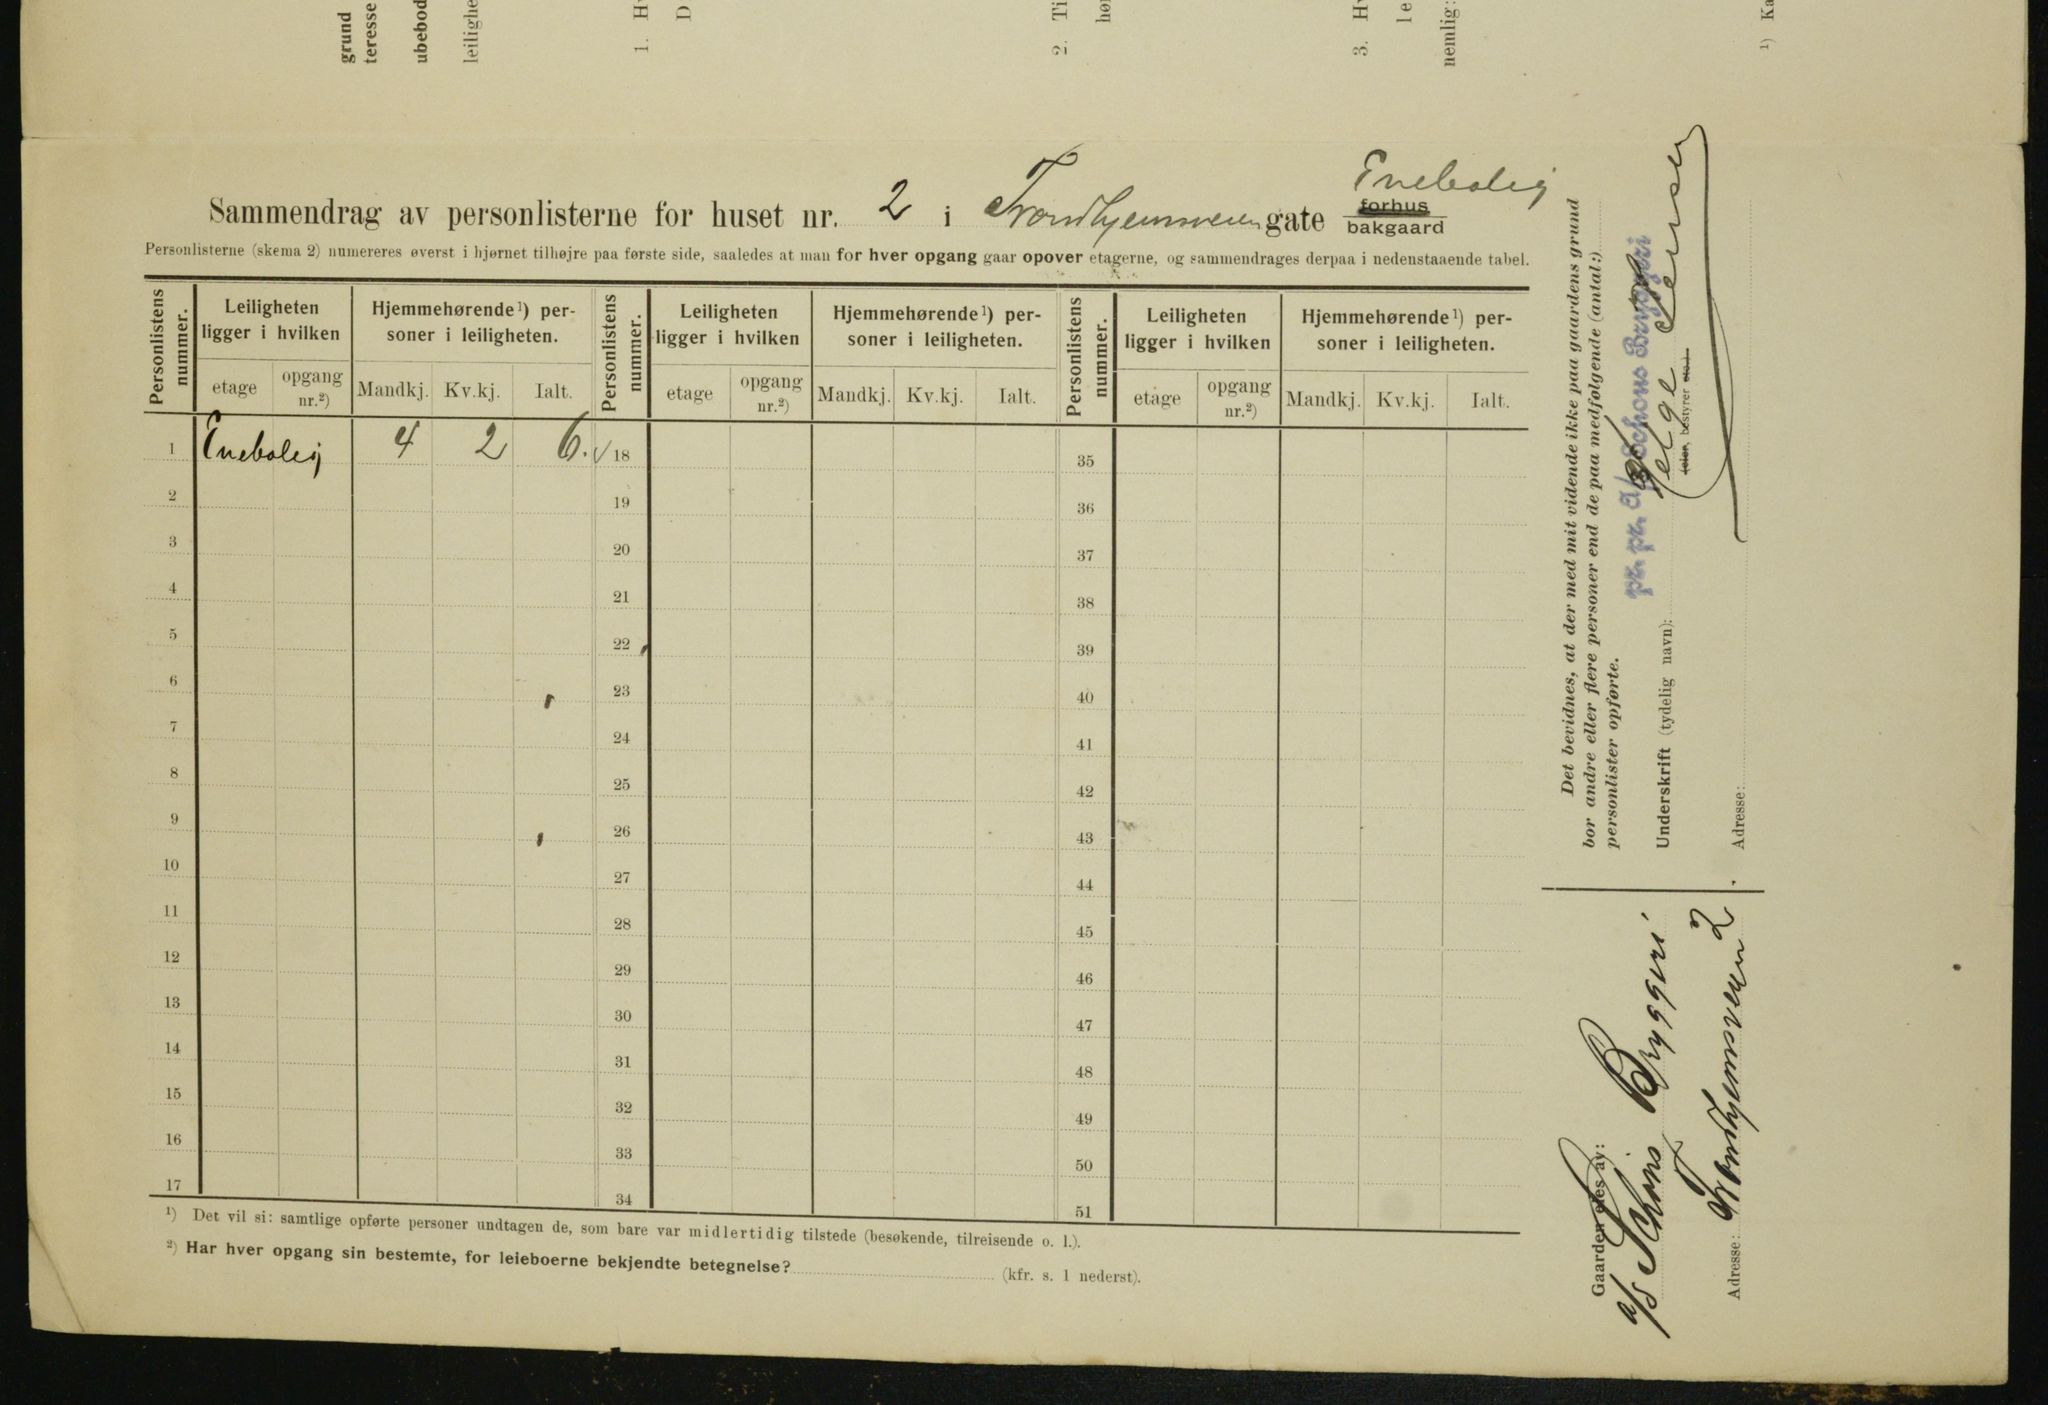 grund
teresse
ubebod
leilighe
1. H
D
2. Ti
hør
3. Hv
le
nemlig:
1) Ka
Enebolig
Sammendrag av personlisterne for huset nr. 2 i Trondhjemsveien gate forhus
bakgaard
Personlisterne (skema 2) numereres øverst i hjørnet tilhøjre paa første side, saaledes at man for hver opgang gaar opover etagerne, og sammendrages derpaa i nedenstaaende tabel.
Personlistens nummer. Leiligheten ligger i hvilken Hjemmehørende1) personer i leiligheten. Personlistens nummer. Leiligheten ligger i hvilken Hjemmehørende1) personer i leiligheten. Personlistens nummer. Leiligheten ligger i hvilken Hjemmehørende1) personer i leiligheten.
etage opgang nr.2) Mandkj. Kv.kj. Ialt. etage opgang nr.2) Mandkj. Kv.kj. Ialt. etage opgang nr.2) Mandkj. Kv.kj. Ialt.
1 Enebolig 4 2 6. 18 35
2 19 36
3 20 37
4 21 38
5 22 39
6 23 40
7 24 41
8 25 42
9 26 43
10 27 44
11 28 45
12 29 46
13 30 47
14 31 48
15 32 49
16 33 50
17 34 51
1) Det vil si: samtlige opførte personer undtagen de, som bare var midlertidig tilstede (besøkende, tilreisende o. l.).
2) Har hver opgang sin bestemte, for leieboerne bekjendte betegnelse? (kfr. s. 1 nederst).
Det bevidnes, at der med mit vidende ikke paa gaardens grund
bor andre eller flere personer end de paa medfølgende (antal:)
personlister opførte.
pr. pr. A/S Schous Bryggeri
Underskrift (tydelig navn):
(eier, bestyrer etc.)
Adresse:
Gaarden eies av:
A/S Schous Bryggeri
Adresse: Trondhjemsveien 2.